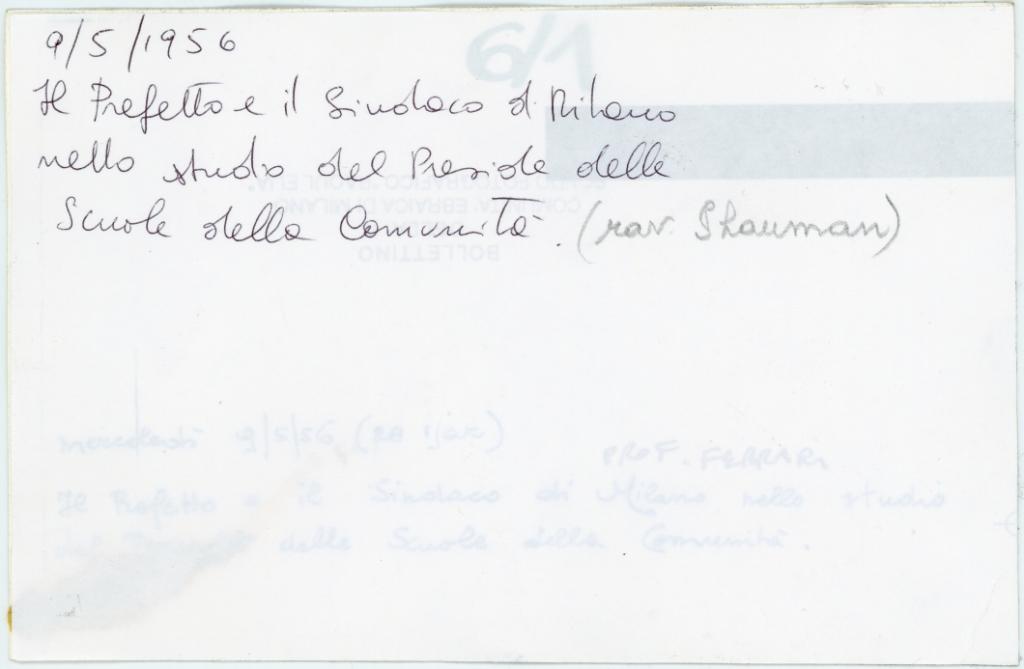 6/1
9/5/1956
Il Prefetto e il Sindaco di Milano
nello studio del Preside delle
Scuole della Comunità. (rav. Shauman)
FONDO FOTOGRAFICO "RAOUL ELIA"
COMUNITA' EBRAICA DI MILANO
BOLLETTINO
mercoledì 9/5/56 (28 Ijar)
PROF. FERRARI
Il Prefetto e il Sindaco di Milano nello studio
del delle Scuole della Comunità.